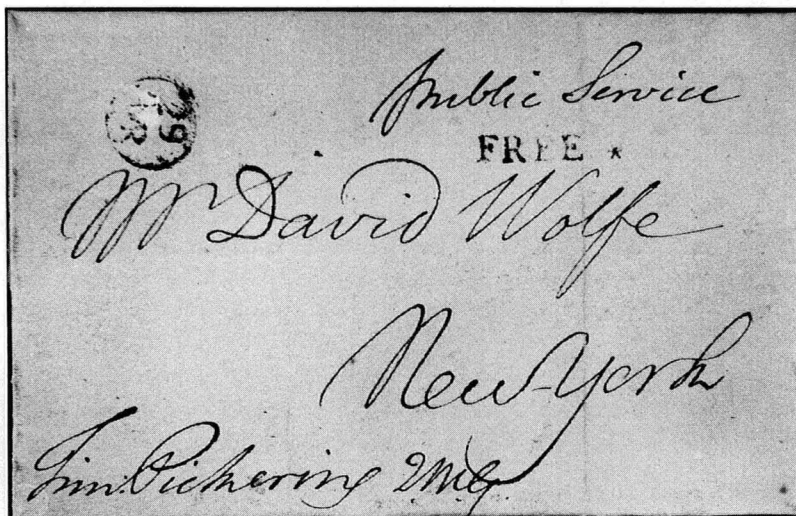 public Service
29
FREE *
Mr David Wolfe
New-York
Tim. Pickering QMG.